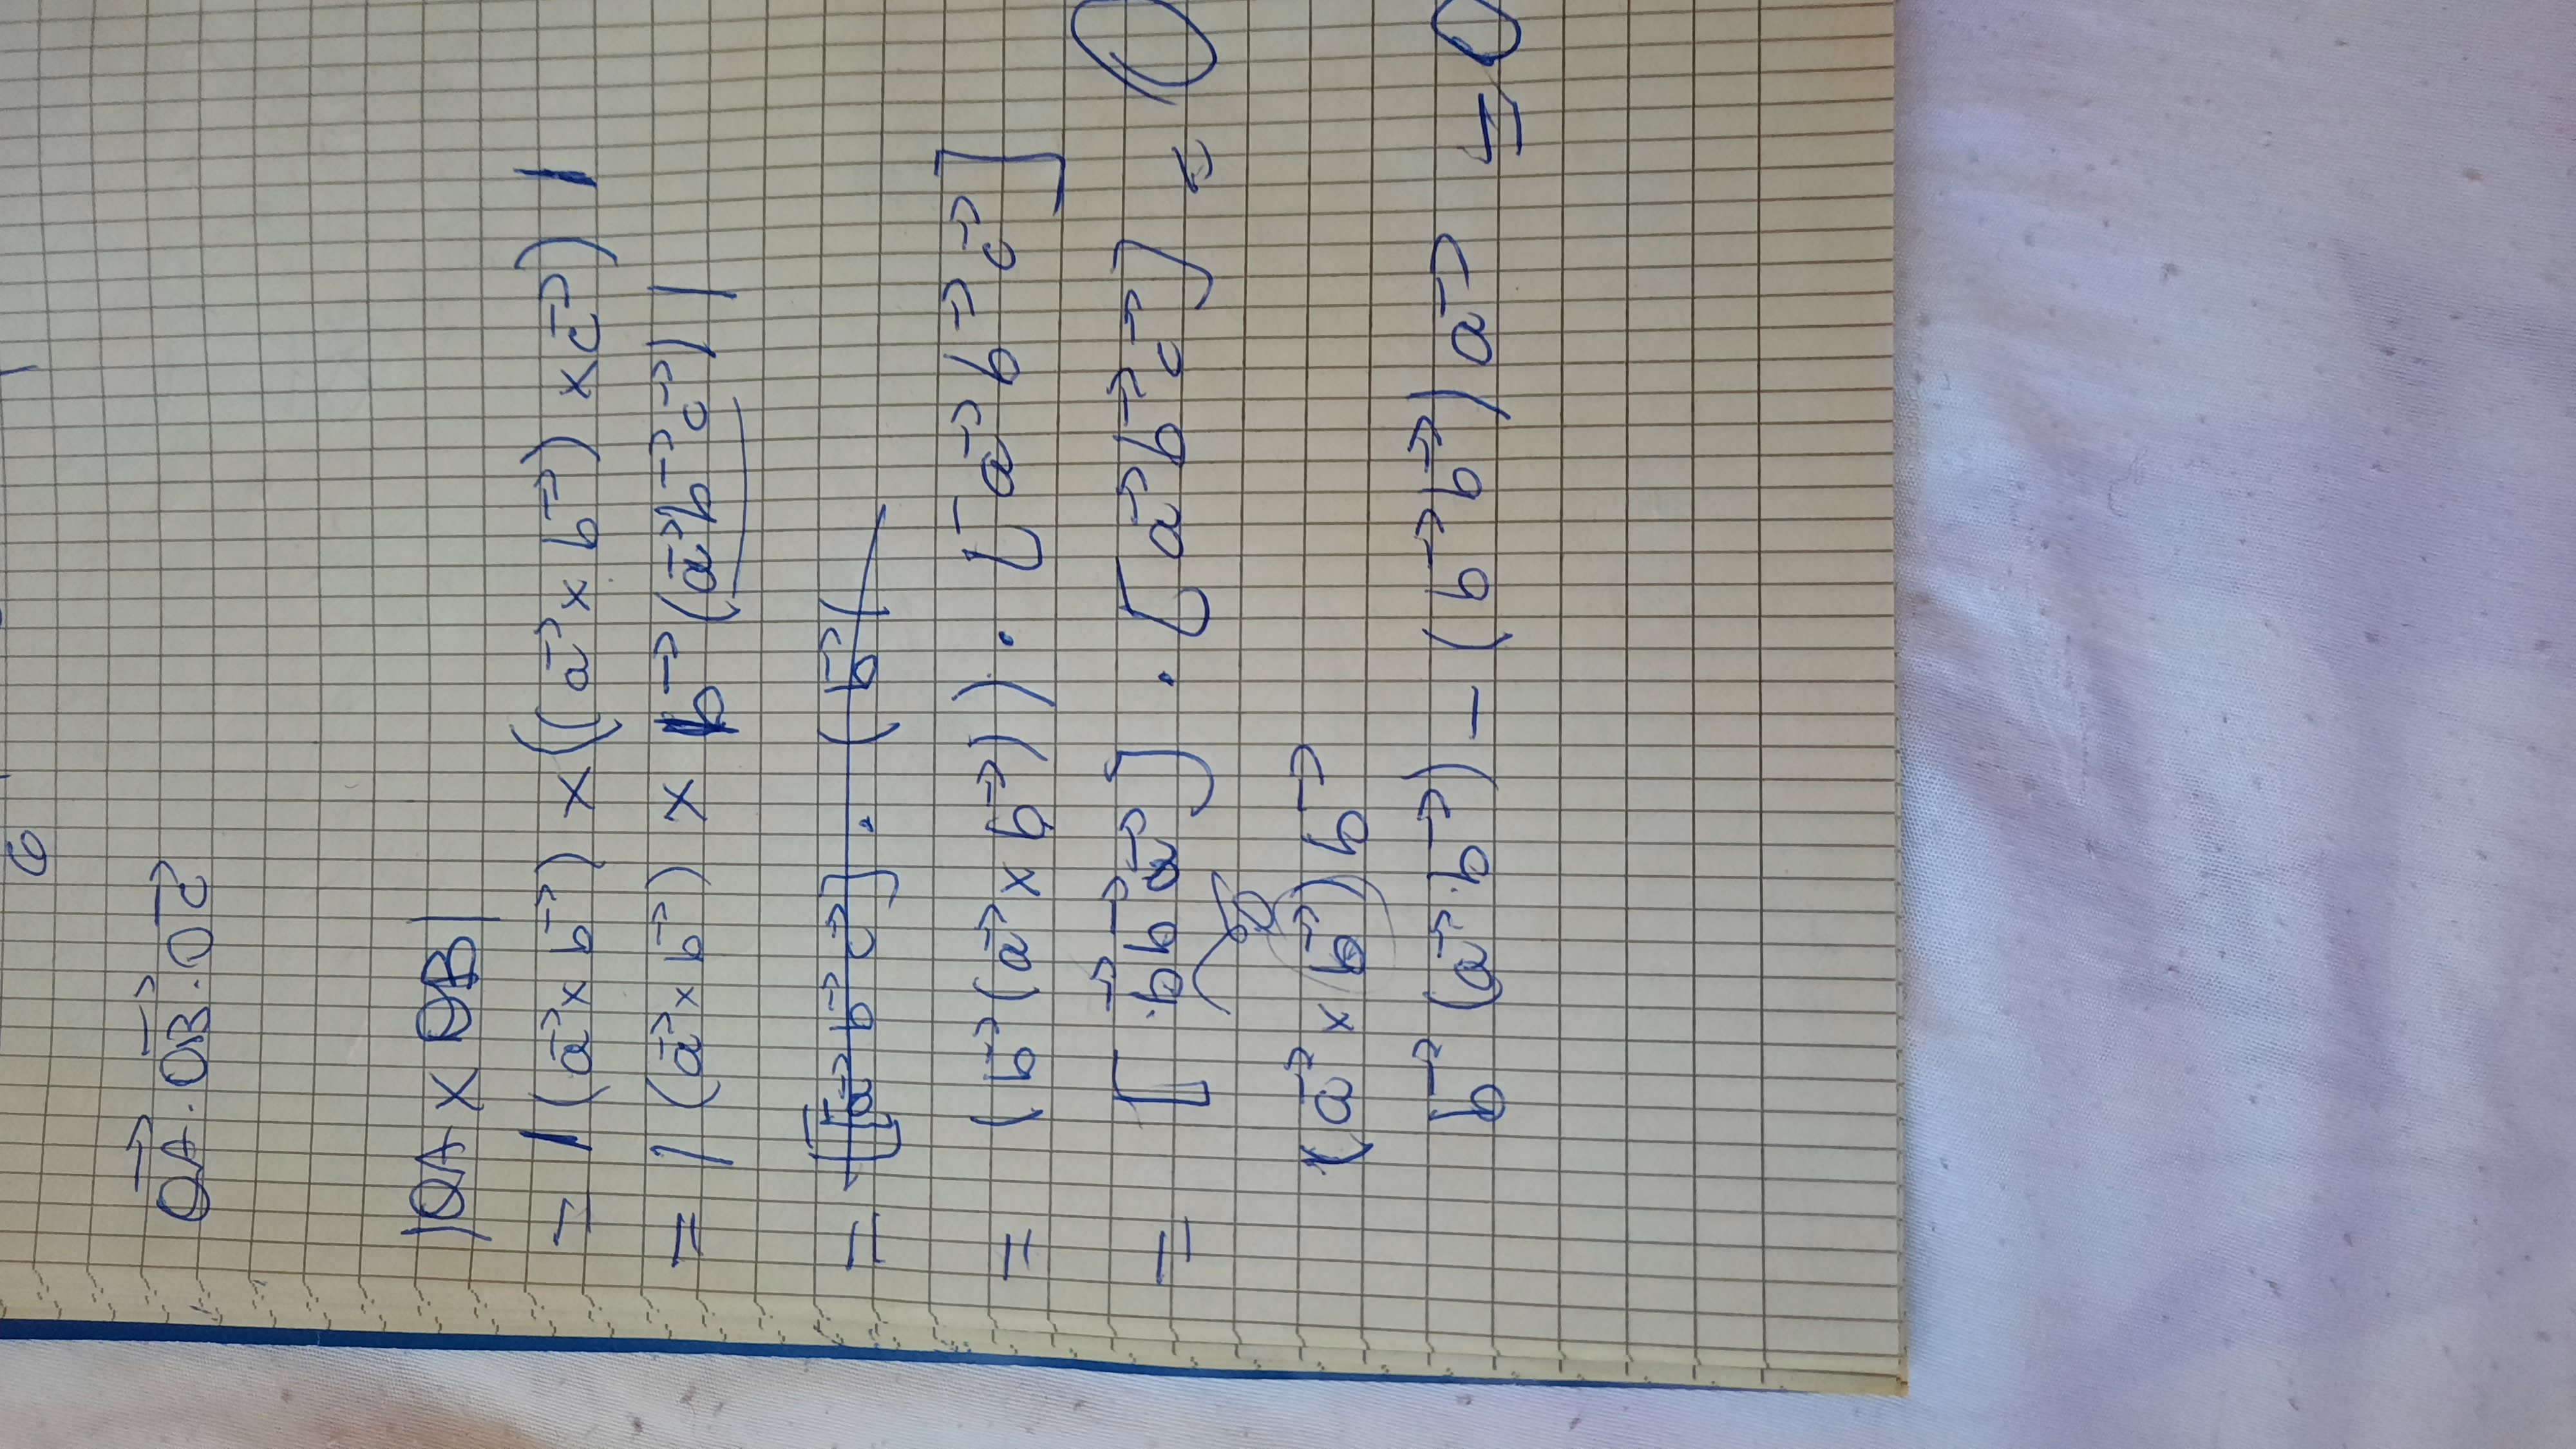 6
OA⃗ . OB⃗ . OC⃗
|OA × OB|
= |(a⃗ × b⃗) × ((a⃗ × b⃗) × c⃗)|
= |(a⃗ × b⃗) × b⃗ (a⃗ b⃗ c⃗)|
= [[a⃗ b⃗ c⃗] . (b⃗)
= (b⃗ (a⃗ × b⃗)) . [a⃗ b⃗ c⃗]
= [b⃗ b⃗ a⃗] . [a⃗ b⃗ c⃗] = 0
(a⃗ × b⃗) b⃗
b⃗ (a⃗ . b⃗) – (b⃗ b⃗) a⃗ = 0